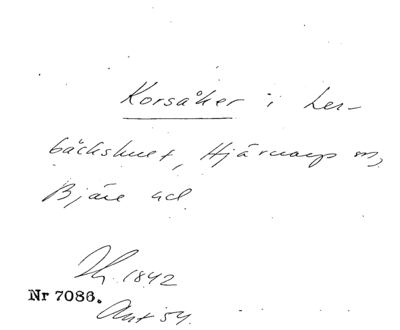 Korsåker i Ler-
bäckshult, Hjärnarps sn,
Bjäre hd
Th. 1842
Nr 7086.
Ant 54.